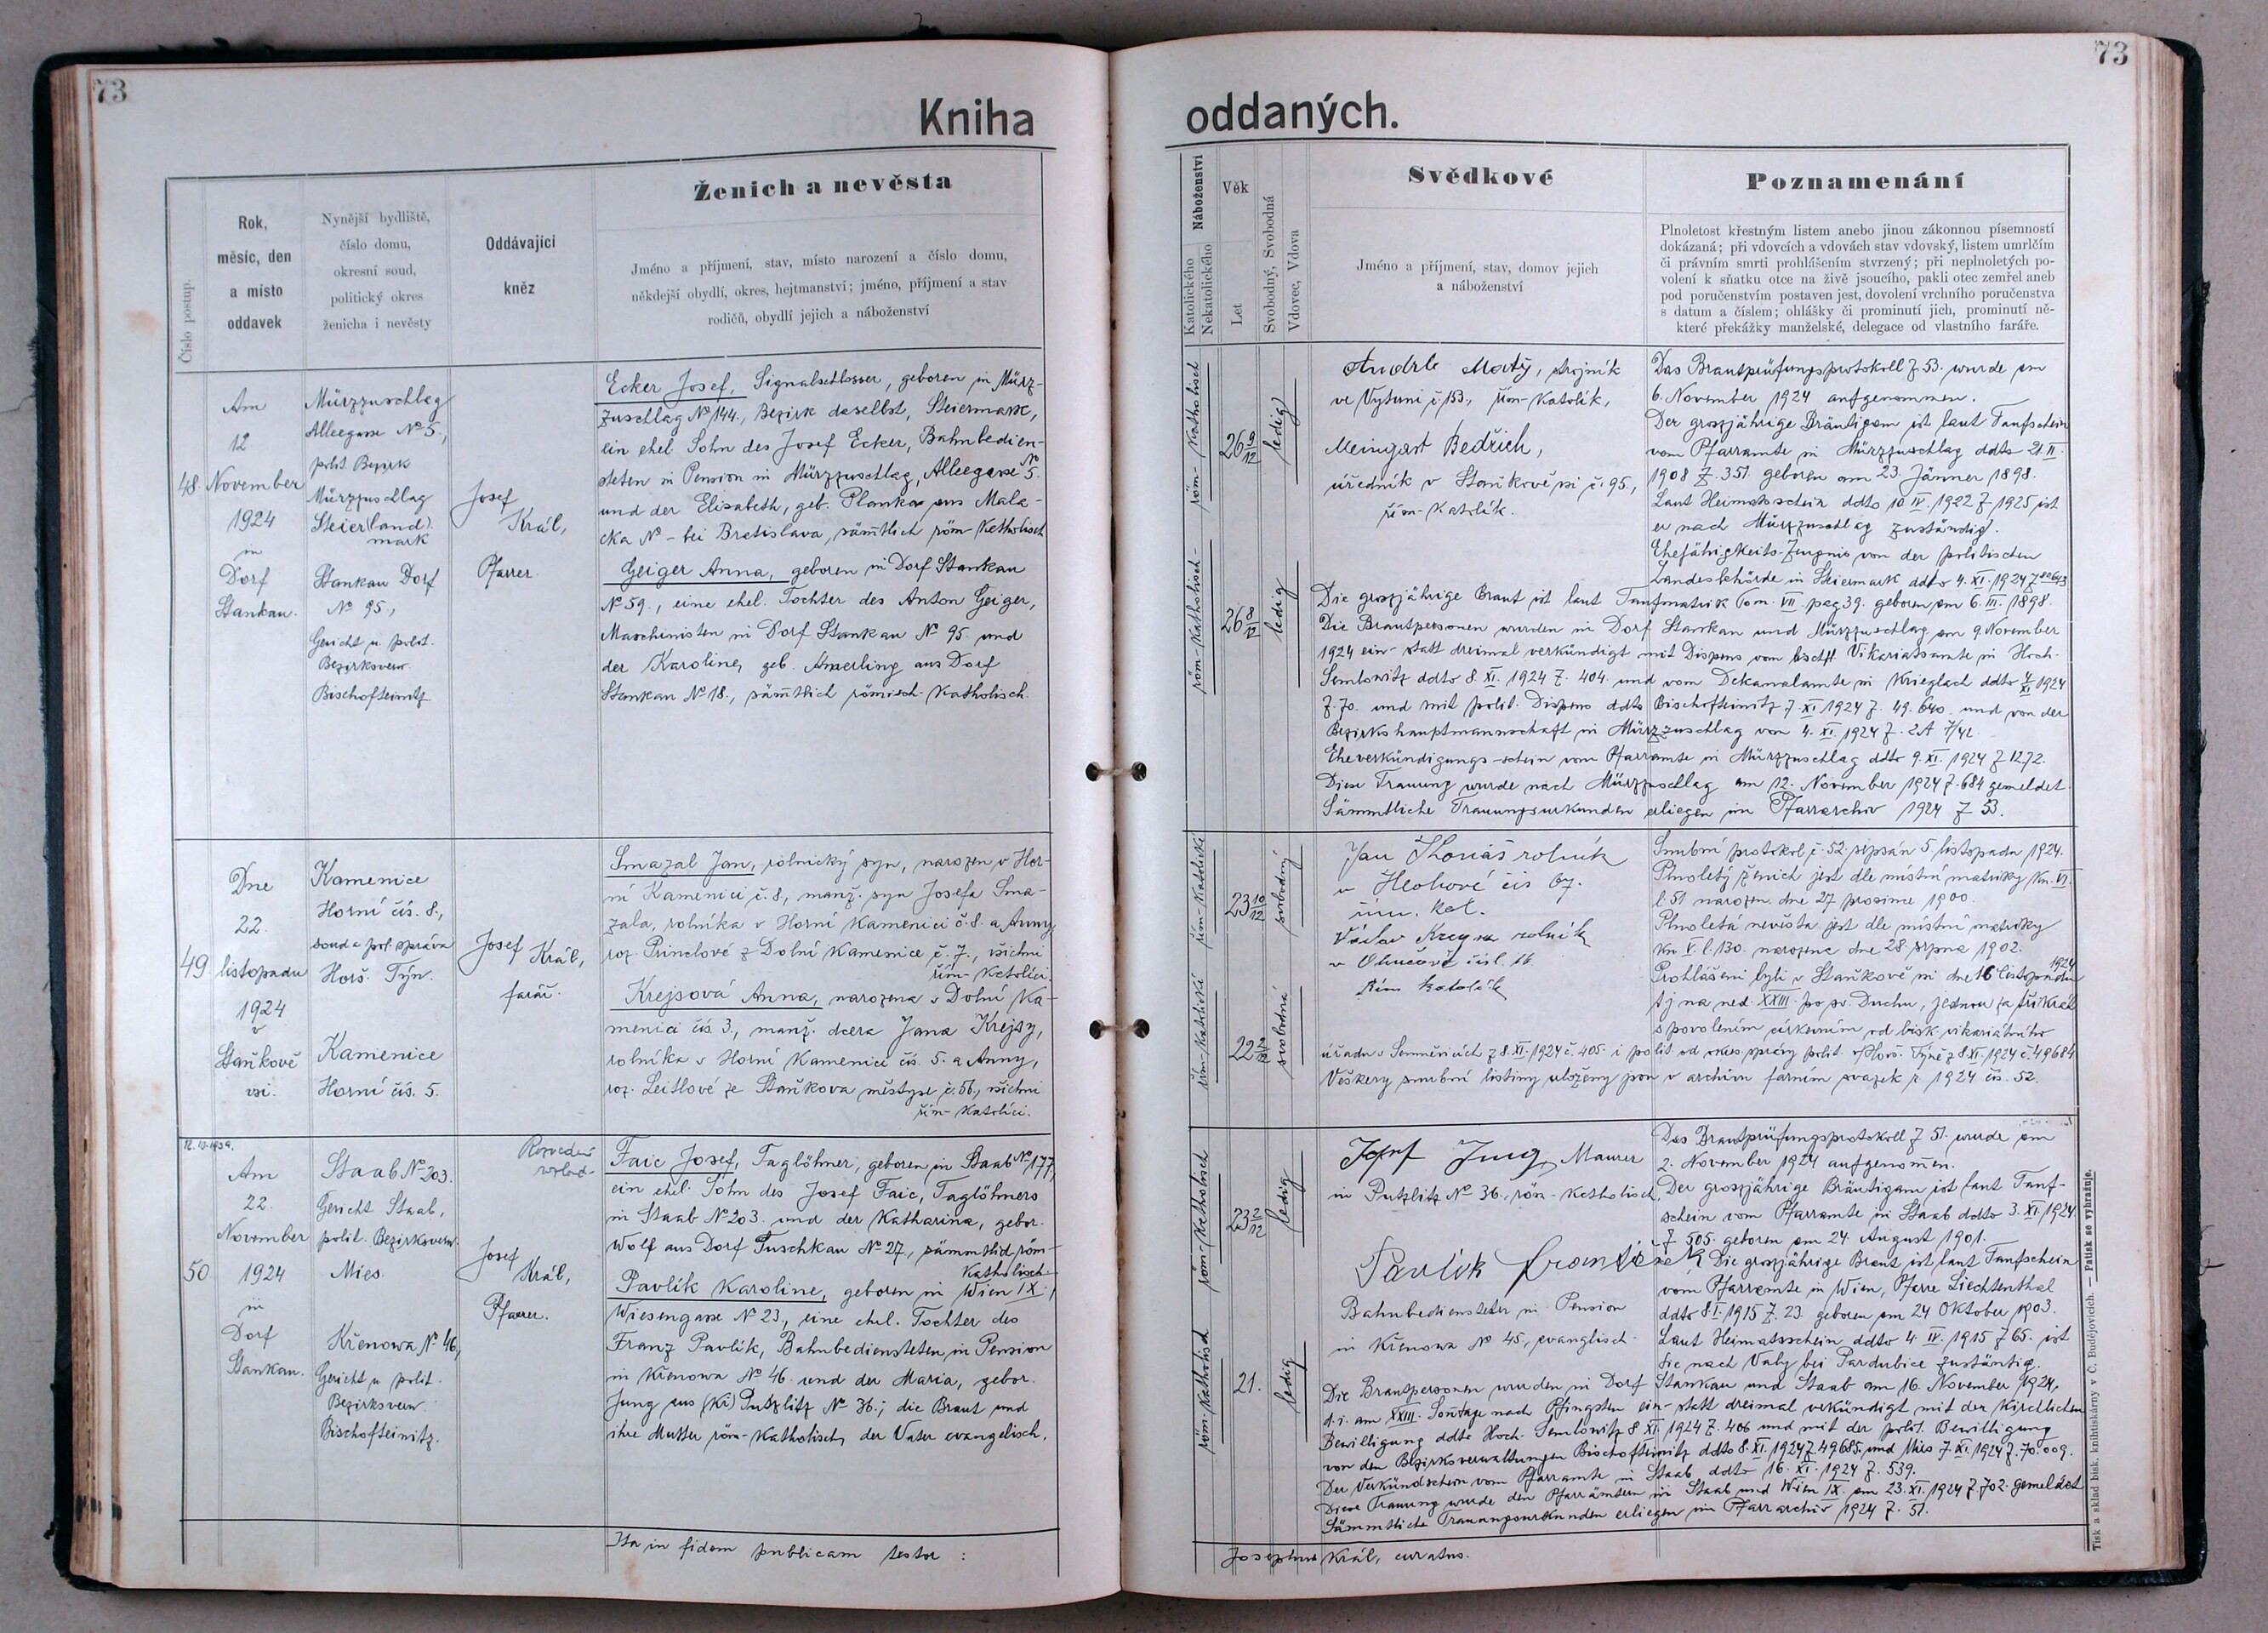 73
73
Kniha
oddaných.
Číslo postup.
Rok,
měsíc, den
a místo
oddavek
Nynější bydliště,
číslo domu,
okresní soud,
politický okres
ženicha i nevěsty
Oddávající
kněz
Ženich a nevěsta
Jméno a příjmení, stav, místo narození a číslo domu,
někdejší obydlí, okres, hejtmanství; jméno, příjmení a stav
rodičů, obydlí jejich a náboženství
Náboženství
Katolického
Nekatolického
Věk
Let
Svobodný, Svobodná
Vdovec, Vdova
Svědkové
Jméno a příjmení, stav, domov jejich
a náboženství
Poznamenání
Plnoletost křestným listem anebo jinou zákonnou písemností
dokázaná; při vdovcích a vdovách stav vdovský, listem umrlčím
či právním smrti prohlášením stvrzený; při neplnoletých po-
volení k sňatku otce na živě jsoucího, pakli otec zemřel aneb
pod poručenstvím postaven jest, dovolení vrchního poručenstva
s datum a číslem; ohlášky či prominutí jich, prominutí ně-
které překážky manželské, delegace od vlastního faráře.
48.
Am
12
November
1924
in
Dorf
Stankau.
Mürzzuschlag
Alleegasse No 5.,
polit. Bezirk
Mürzzuschlag
Steier(land).
mark
Stankau Dorf
No 95.,
Gericht u. polit.
Bezirksverw.
Bischofteinitz
Josef
Král,
Pfarrer.
Ecker Josef, Signalschlosser, geboren in Mürz-
zuschlag No 144., Bezirk daselbst, Steiermark,
ein ehel. Sohn des Josef Ecker, Bahnbedien-
steten in Pension in Mürzzuschlag, Alleegasse No 5.
und der Elisabeth, geb. Planka aus Mala-
cka No - bei Bratislava, sämtlich röm-Katholisch
Geiger Anna, geboren in Dorf Stankau
No 59., eine ehel. Tochter des Anton Geiger,
Maschinisten in Dorf Stankau No 95. und
der Karoline, geb. Amerling aus Dorf
Stankau No 18., sämtlich römisch-Katholisch.
röm-Katholisch
26 9/12
ledig
röm-Katholisch
26 8/12
ledig
Andrle Matěj, strojník
ve Vytuni č 153., řím-Katolík,
Meingast Bedřich,
úředník v Staňkově vsi č. 95,
řím-Katolík.
Das Brautprüfungsprotokoll Z. 53. wurde am
6. November 1924 aufgenommen.
Der grossjährige Bräutigam ist laut Taufschein
vom Pfarramte in Mürzzuschlag ddto 21. II.
1908 Z. 351. geboren am 23. Jänner 1898.
Laut Heimatsschein ddto 10 IV. 1922 Z 1925 ist
er nach Mürzzuschlag zuständig.
Ehefähigkeits-Zeugnis von der politischen
Landesbehörde in Steiermark ddto 4. XI. 1924 Z
Die grossjährige Braut ist laut Taufmatrik Tom. VII. pag 39. geboren am 6. III. 1898.
Die Brautpersonen wurden in Dorf Stankau und Mürzzuschlag am 9. November
1924 ein- statt dreimal verkündigt mit Dispens vom bischfl. Vikariatsamte in Hoch-
Semlowitz ddto 8. XI. 1924 Z. 404. und vom Dekanalamte in Krieglach ddto 4/XI 1924
Z. 70. und mit polit. Dispens ddto Bischofteinitz 7. XI 1924 Z. 49.640. und von der
Bezirkshauptmannschaft in Mürzzuschlag von 4. XI. 1924 Z. 2A 7/42.
Eheverkündigungs-schein vom Pfarramte in Mürzzuschlag ddto 9. XI. 1924 Z 1272.
Diese Trauung wurde nach Mürzzuschlag am 12. November 1924 Z. 684 gemeldet
Sämmtliche Trauungsurkunden erliegen im Pfarrarchiv 1924 Z 53.
49.
Dne
22.
listopadu
1924
v
Staňkově
vsi.
Kamenice
Horní čís. 8.,
soud a pol. správa
Horš. Týn.
Kamenice
Horní čís. 5.
Josef
Král,
farář.
Smazal Jan, rolnický syn, narozen v Hor-
ní Kamenici č. 8., manž. syn Josefa Sma-
zala, rolníka v Horní Kamenici č. 8. a Anny
roz. Princlové z Dolní Kamenice č. 7., všichni
řím-Katolíci.
Krejsová Anna, narozena v Dolní Ka-
menici čís. 3., manž. dcera Jana Krejsy,
rolníka v Horní Kamenici čís. 5. a Anny,
roz. Leitlové ze Staňkova městyse č. 56., všichni
řím-Katolíci.
řím-Katolický
23 10/12
svobodný
řím-Katolický
22 2/12
svobodná
Jan rolník
v čís 67.
řím. kat.
Václav rolník
v čísl. 16
řím katolík
Snubní protokol č. 52. sepsán 5 listopadu 1924.
Plnoletý ženich jest dle místní matriky Kn. VI.
l. 51 narozen dne 27 prosince 1900.
Plnoletá nevěsta jest dle místní matriky
Kn V. l. 130. narozena dne 28. srpna 1902.
Prohlášeni byli v Staňkově vsi dne 16 listopadu 1924
tj na ned. XXIII. po sv. Duchu, jednou za třikrát
s povolením církevním od bisk. vikariátního
úřadu v Semněvicích z 8. XI. 1924 č. 405. i polit. od okres. správy polit. v Horš. Týně z 8. XI. 1924 č. 49684
Veškery snubní listiny uloženy jsou v archivu farním svazek r. 1924 čís. 52.
12. 10. 1939.
50
Am
22.
November
1924
in
Dorf
Stankau.
Staab No 203.
Gericht Staab,
polit. Bezirksverw.
Mies.
Křenowa No 46,
Gericht u polit.
Bezirksverw.
Bischofteinitz.
Josef
Král,
Pfarrer.
Faic Josef, Taglöhner, geboren in Staab No 177,
ein ehel. Sohn des Josef Faic, Taglöhners
in Staab No 203. und der Katharina, gebor.
Wolf aus Dorf Tuschkau No 27, sämmtlich röm-
Katholisch
Pavlík Karoline, geboren in Wien IX.,
Wiesengasse No 23., eine ehel. Tochter des
Franz Pavlík, Bahnbediensteten in Pension
in Křenowa No 46. und der Maria, gebor.
Jung aus (Kř) Putzlitz No 36.; die Braut und
ihre Mutter röm-Katholisch, der Vater evangelisch.
röm-Katholisch
23 2/12
ledig
röm-Katholisch
21.
ledig
Josef Jung, Maurer
in Putzlitz No 36., röm-Katholisch.
Pavlík
Bahnbediensteter in Pension
in Křenowa No 45, evanglisch.
Das Brautprüfungsprotokoll Z 51. wurde am
2. November 1924 aufgenommen.
Der grossjährige Bräutigam ist laut Tauf-
schein vom Pfarramte in Staab ddto 3. XI. 1924
Z 505. geboren am 24. August 1901.
Die grossjährige Braut ist laut Taufschein
vom Pfarramte in Wien, Pfarre Liechtenthal
ddto 8. I. 1915 Z. 23. geboren am 24 Oktober 1903.
Laut Heimatsschein ddto 4 IV. 1915 Z 65. ist
sie nach Valy bei Pardubice zuständig.
Die Brautpersonen wurden in Dorf Stankau und Staab am 16. November 1924,
d. i. am XXIII. Sonntage nach Pfingsten ein- statt dreimal verkündigt mit der kirchlichen
Bewilligung ddto Hoch. Semlowitz 8 XI. 1924 Z. 406 und mit der polit. Bewilligung
von den Bezirksverwaltungen Bischofteinitz ddto 8. XI. 1924 Z 49685. und Mies 7. XI. 1924 Z. 70.009.
Der Verkündschein vom Pfarramte in Staab ddto 16. XI. 1924 Z. 539.
Diese Trauung wurde den Pfarrämtern in Staab und Wien IX. am 23. XI. 1924 Z. 702. gemeldet
Sämmtliche Trauungsurkunden erliegen im Pfarrarchiv 1924 Z. 51.
Ita in fidem publicam testor :
Josephus Král, curatus.
Tisk a sklad bisk. knihtiskárny v Č. Budějovicích. — Patisk se vyhražuje.